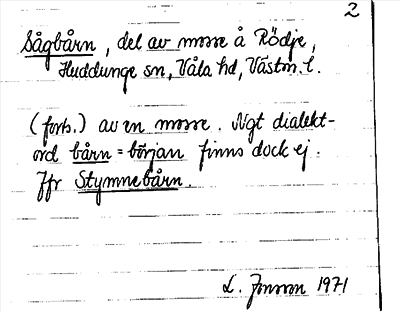 2
Sågbårn, del av mosse å Rödje,
Huddunge sn, Våla hd, Västm. l.
(forts.) av en mosse. Ngt dialekt-
ord bårn = början finns dock ej.
Jfr Stymnebårn.
L. Jonsson 1971